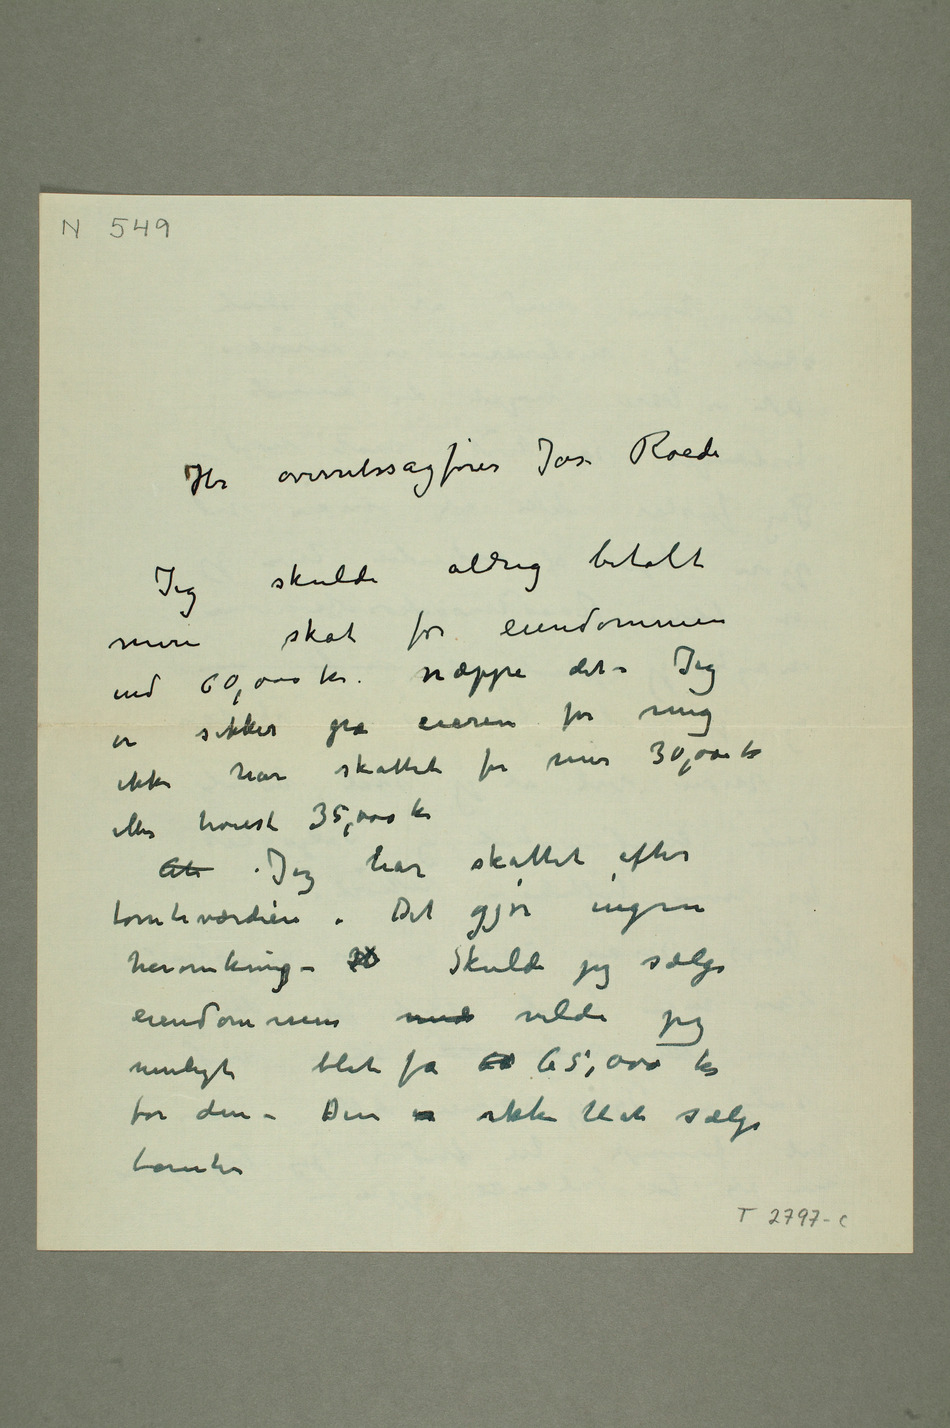 N 549
Hr overretssagfører Jos. Roede
Jeg skulde aldrig betalt
mere skat for eiendommen
end 60,000 kr. næppe det – Jeg
er sikker på eieren før mig
ikke har skattet for mer 30,000 kr
eller høiest 35,000 kr
At Jeg har skattet efter
tomteværdien . Det gjør ingen
heromkring – Skulde jeg sælge
eiendommen vilde jeg
muligt blit få 65,000 kr
for den – Den er ikke let sælge
tomter
T 2797-c